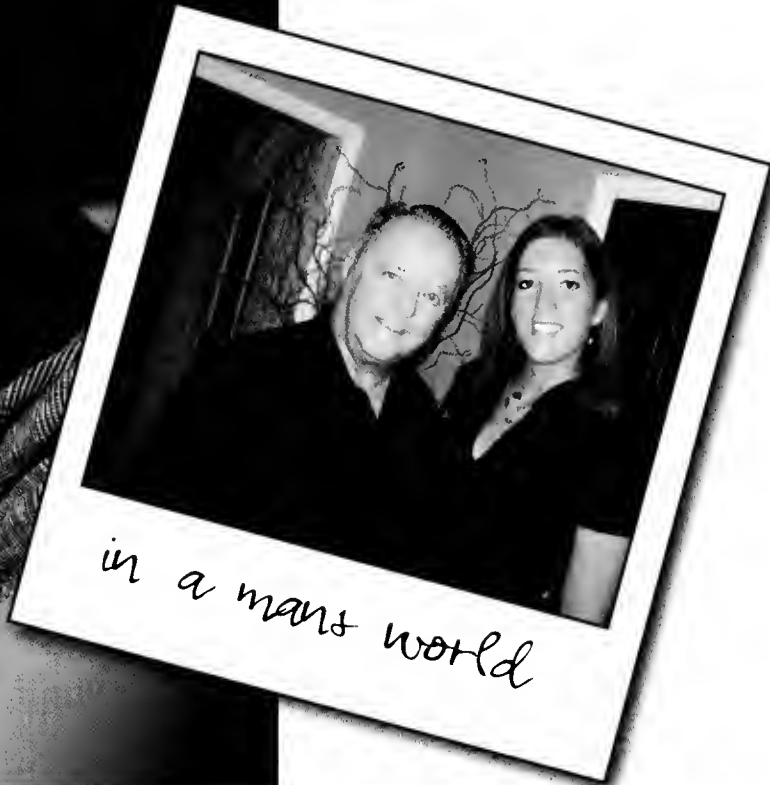 in a mans world